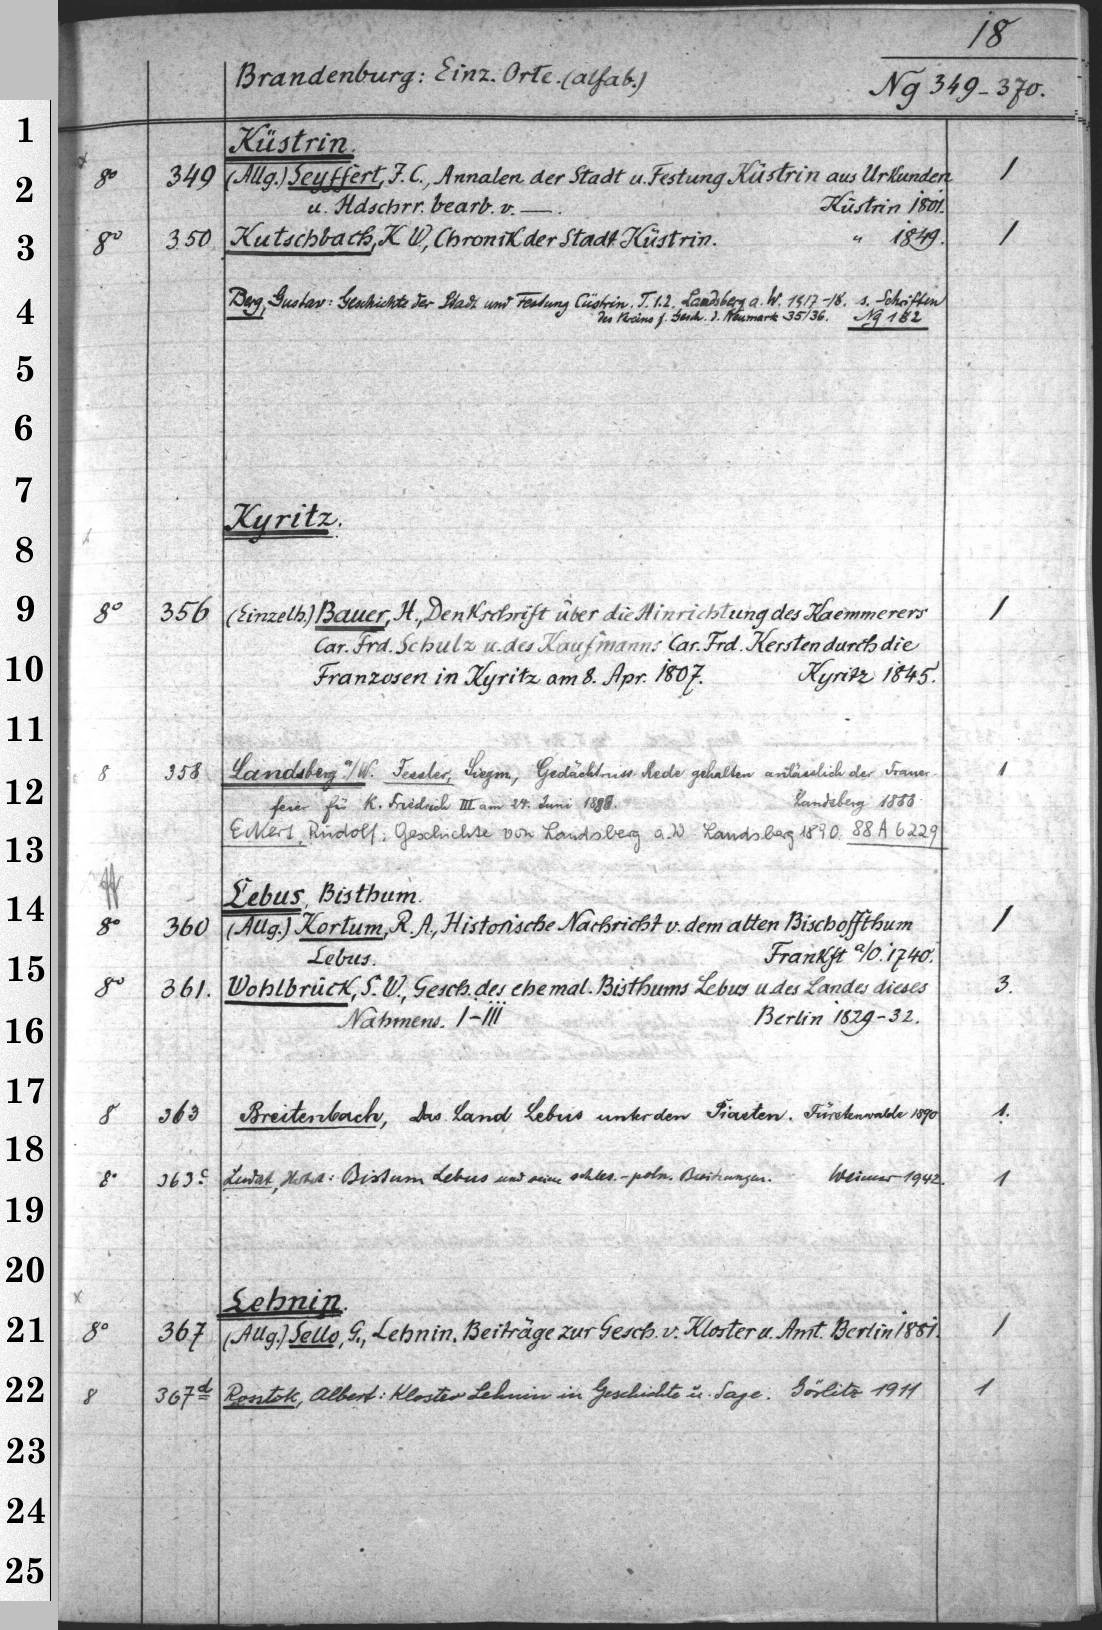 18
Brandenburg: Einz. Orte. (alfab.) Ng 349-370.
1 Küstrin.
2 8° 349 (Allg.) Seyffert, J. C., Annalen der Stadt u. Festung Küstrin aus Urkunden 1
u. Hdschrr. bearb. v. —. Küstrin 1801.
3 8° 350 Kutschbach, K W, Chronik der Stadt Küstrin. " 1849. 1
4 Berg, Gustav: Geschichte der Stadt und Festung Cüstrin. T. 1.2. Landsberg a. W. 1917-18. s. Schriften
des Vereins f. Gesch. d. Neumark 35/36. Ng 182
5
6
7
Kyritz.
8
9 8° 356 (Einzelh.) Bauer, H., Denkschrift über die Hinrichtung des Kaemmerers 1
Car. Frd. Schulz u. des Kaufmanns Car. Frd. Kersten durch die
10 Franzosen in Kyritz am 8. Apr. 1807. Kyritz 1845.
11
12 8 358 Landsberg a/W. Fessler, Siegm., Gedächtniss-Rede gehalten anlässlich der Trauer- 1
feier für K. Friedrich III am 24. Juni 1888. Landsberg 1888
13 Eckert, Rudolf: Geschichte von Landsberg a. W Landsberg 1890. 88 A 6229
14 Lebus, Bisthum.
8° 360 (Allg.) Kortum, R. A., Historische Nachricht v. dem alten Bischoffthum 1
15 Lebus. Frankft a/O. 1740.
8° 361. Wohlbrück, S. W., Gesch. des ehemal. Bisthums Lebus u des Landes dieses 3.
16 Nahmens. I-III Berlin 1829-32.
17 8 363 Breitenbach, Das Land Lebus unter den Piasten. Fürstenwalde 1890 1.
18 8° 363c Ludat, : Bistum Lebus und seine schles.-poln. Besitzungen. Weimar 1942. 1
19
20 Lehnin.
21 8° 367 (Allg.) Sello, G., Lehnin. Beiträge zur Gesch. v. Kloster u. Amt. Berlin 1881. 1
22 8 367d Rosntok, Albert: Kloster Lehnin in Geschichte u. Sage. Görlitz 1911 1
23
24
25